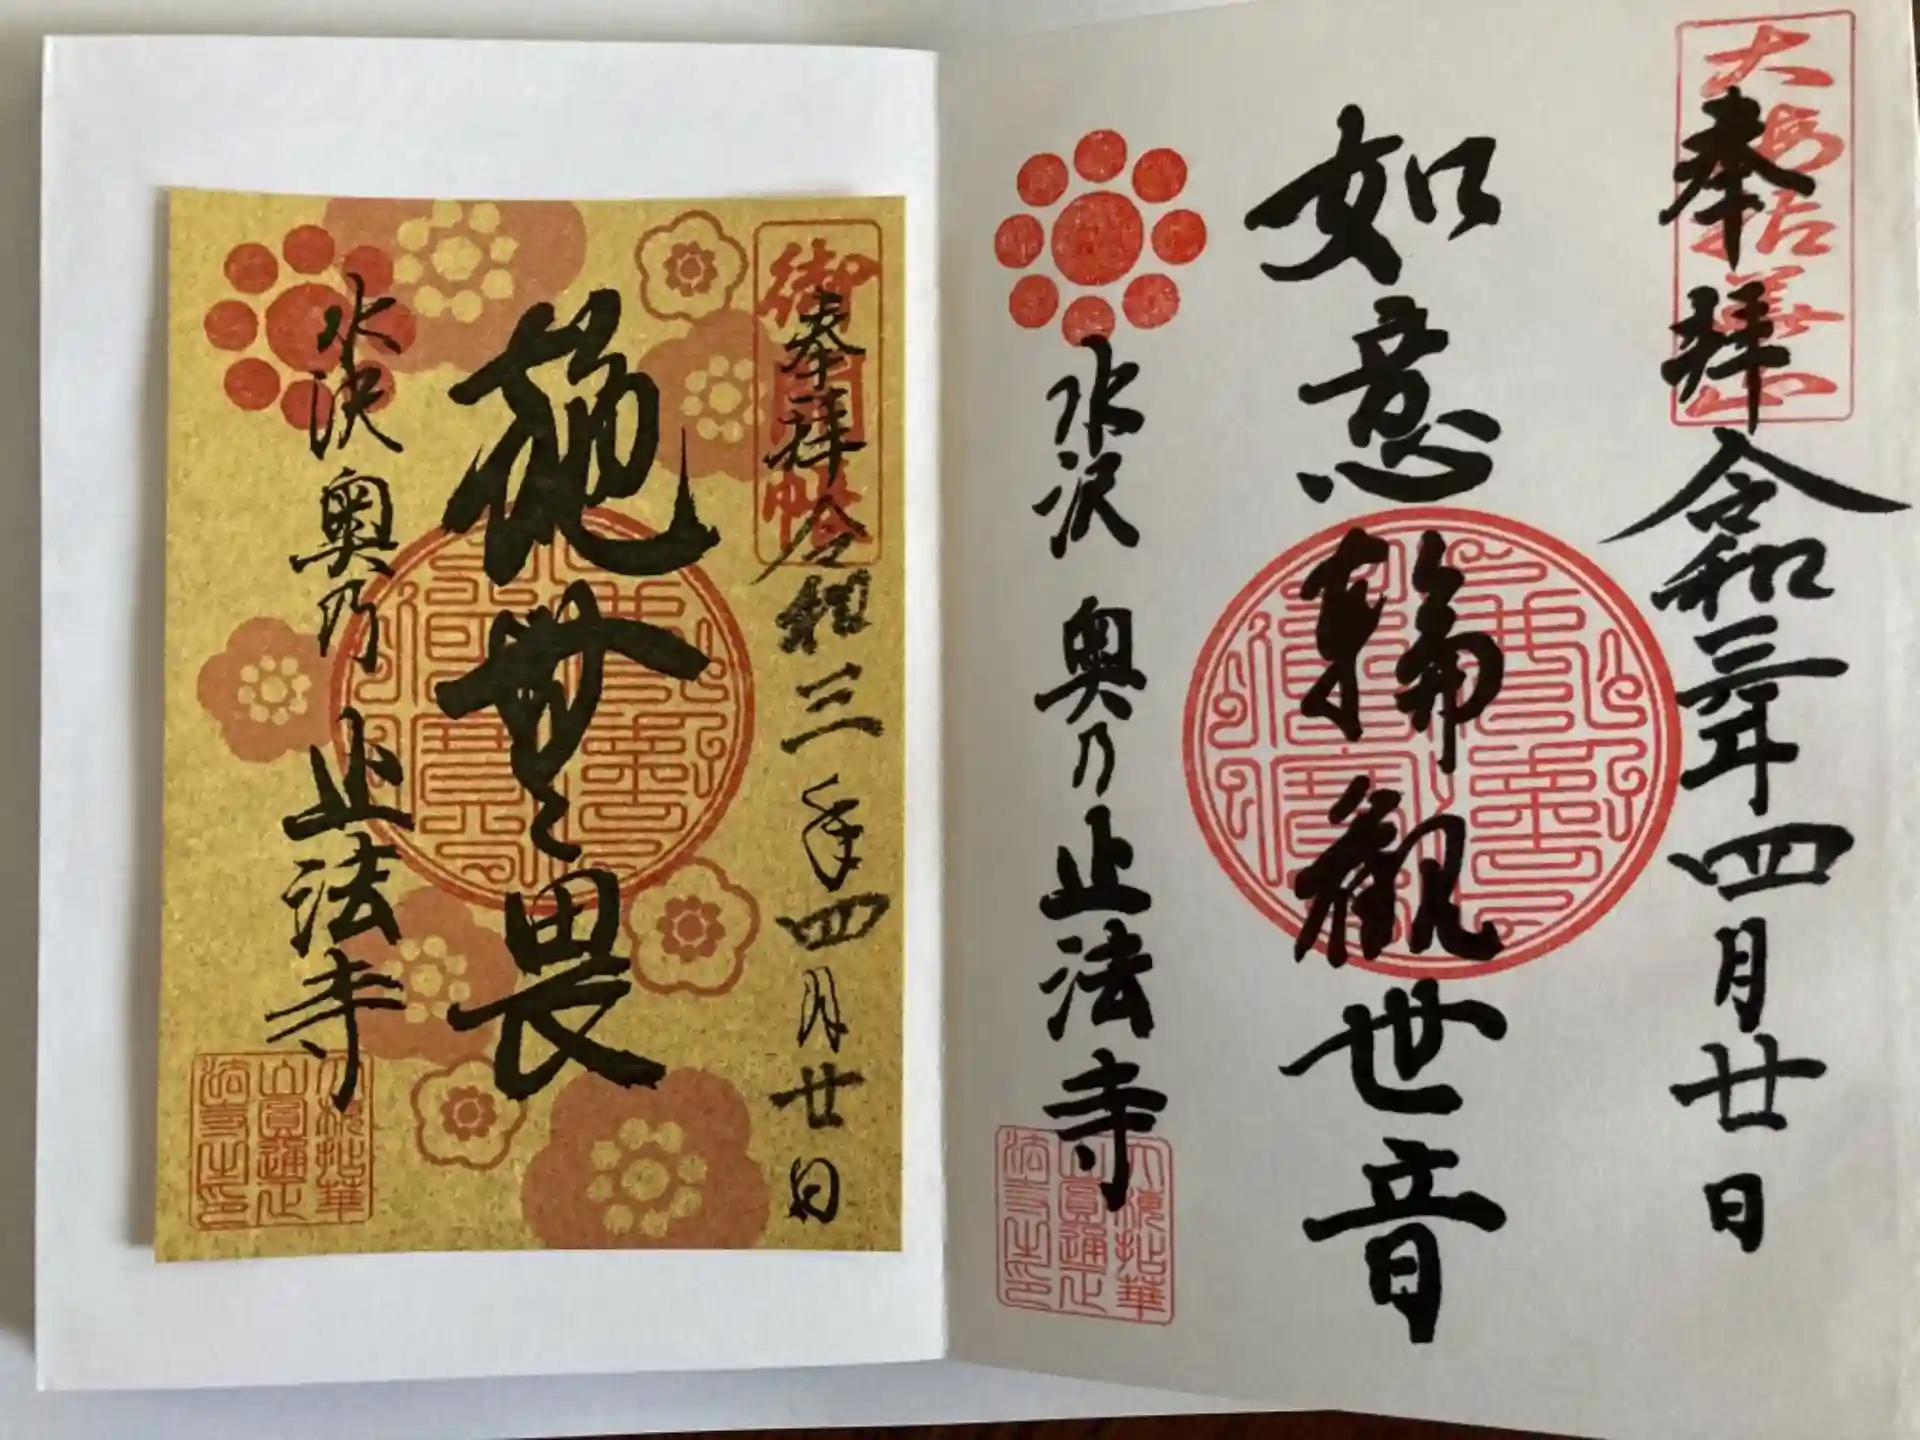 大梅拈華山
奉拝 令和三年四月廿日
如意輪觀世音
水沢 奥乃 止法寺
御朱印帳
奉拝 令和三年四月廿日
施無畏
水沢 奥乃 止法寺